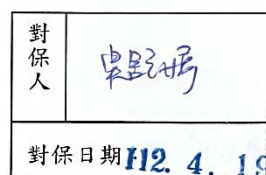 對保人
對保日期 112. 4. 19